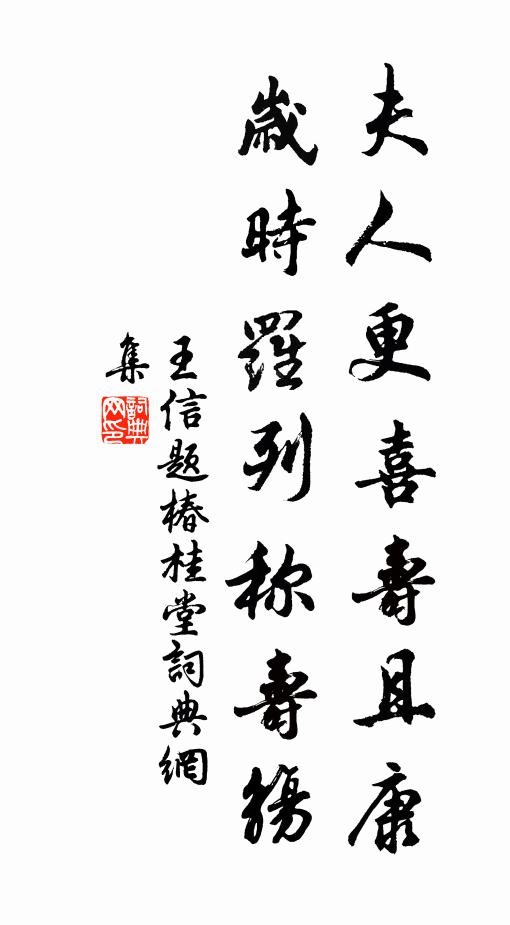 夫人更喜壽且康
歲時羅列称壽觴
王信題椿桂堂詞典網
集
詞典网印